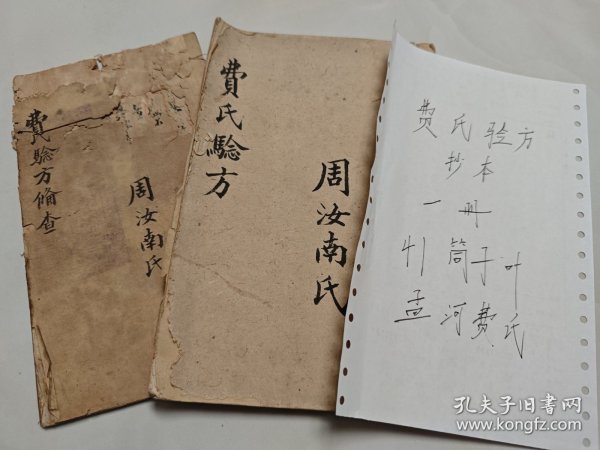 費驗方備查
周汝南氏
費氏驗方
周汝南氏
费氏验方
抄本
一册
41筒子叶
孟河费氏
孔夫子旧书网
www.kongfz.com